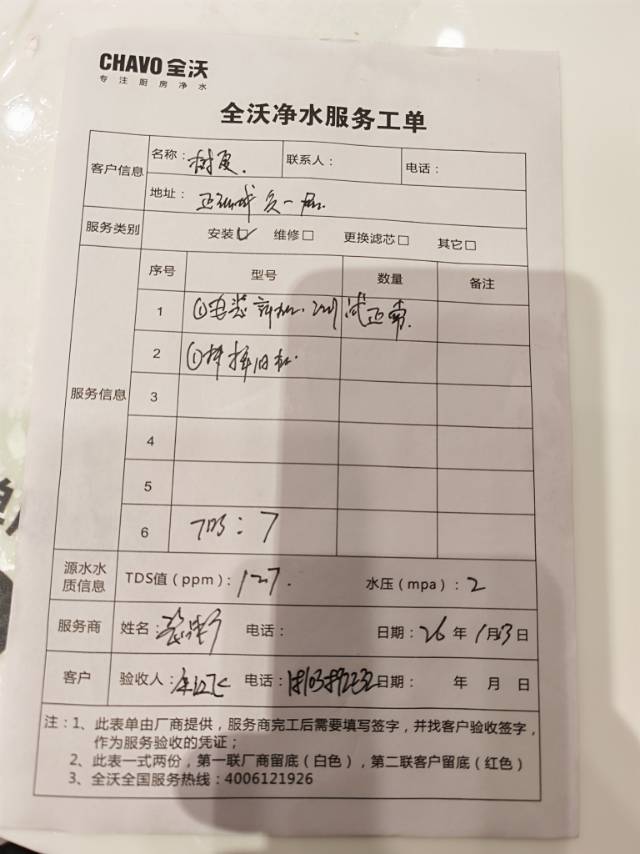 CHAVO 全沃
专注厨房净水
全沃净水服务工单
客户信息 名称： 联系人： 电话：
地址： 负一层
服务类别 安装☑ 维修□ 更换滤芯□ 其它□
服务信息 序号 型号 数量 备注
1 ①安装新机.测试正常.
2 ①拆掉旧机.
3
4
5
6 TDS：7
源水水质信息 TDS值（ppm）：127. 水压（mpa）：2
服务商 姓名： 电话： 日期：26年1月3日
客户 验收人： 电话： 日期： 年 月 日
注：1、此表单由厂商提供，服务商完工后需要填写签字，并找客户验收签字，
作为服务验收的凭证；
2、此表一式两份，第一联厂商留底（白色），第二联客户留底（红色）
3、全沃全国服务热线：4006121926